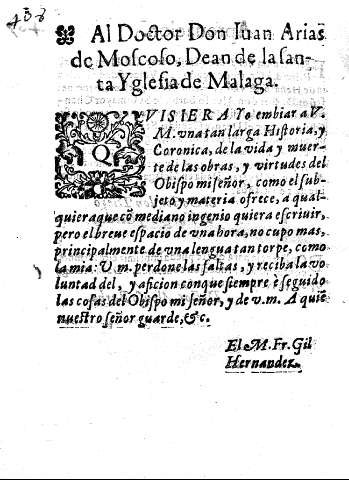 438
Al Doctor Don Iuan Arias
de Moscoso, Dean de la san-
ta Yglesia de Malaga.
QVISIERA Yo embiar a V.
M. vna tan larga Historia, y
Coronica, de la vida y muer-
te de las obras, y virtudes del
Obispo mi señor, como el sub-
jeto y materia ofrece, a qual-
quiera que cõ mediano ingenio quiera escriuir,
pero el breue espacio de vna hora, no cupo mas,
principalmente de vna lengua tan torpe, como
la mia: V.m. perdone las faltas, y reciba la vo-
luntad del, y aficion con que siempre è seguido
las cosas del Obispo mi señor, y de v.m. A quiē
nuestro señor guarde, &c.
El M. Fr. Gil
Hernandez.